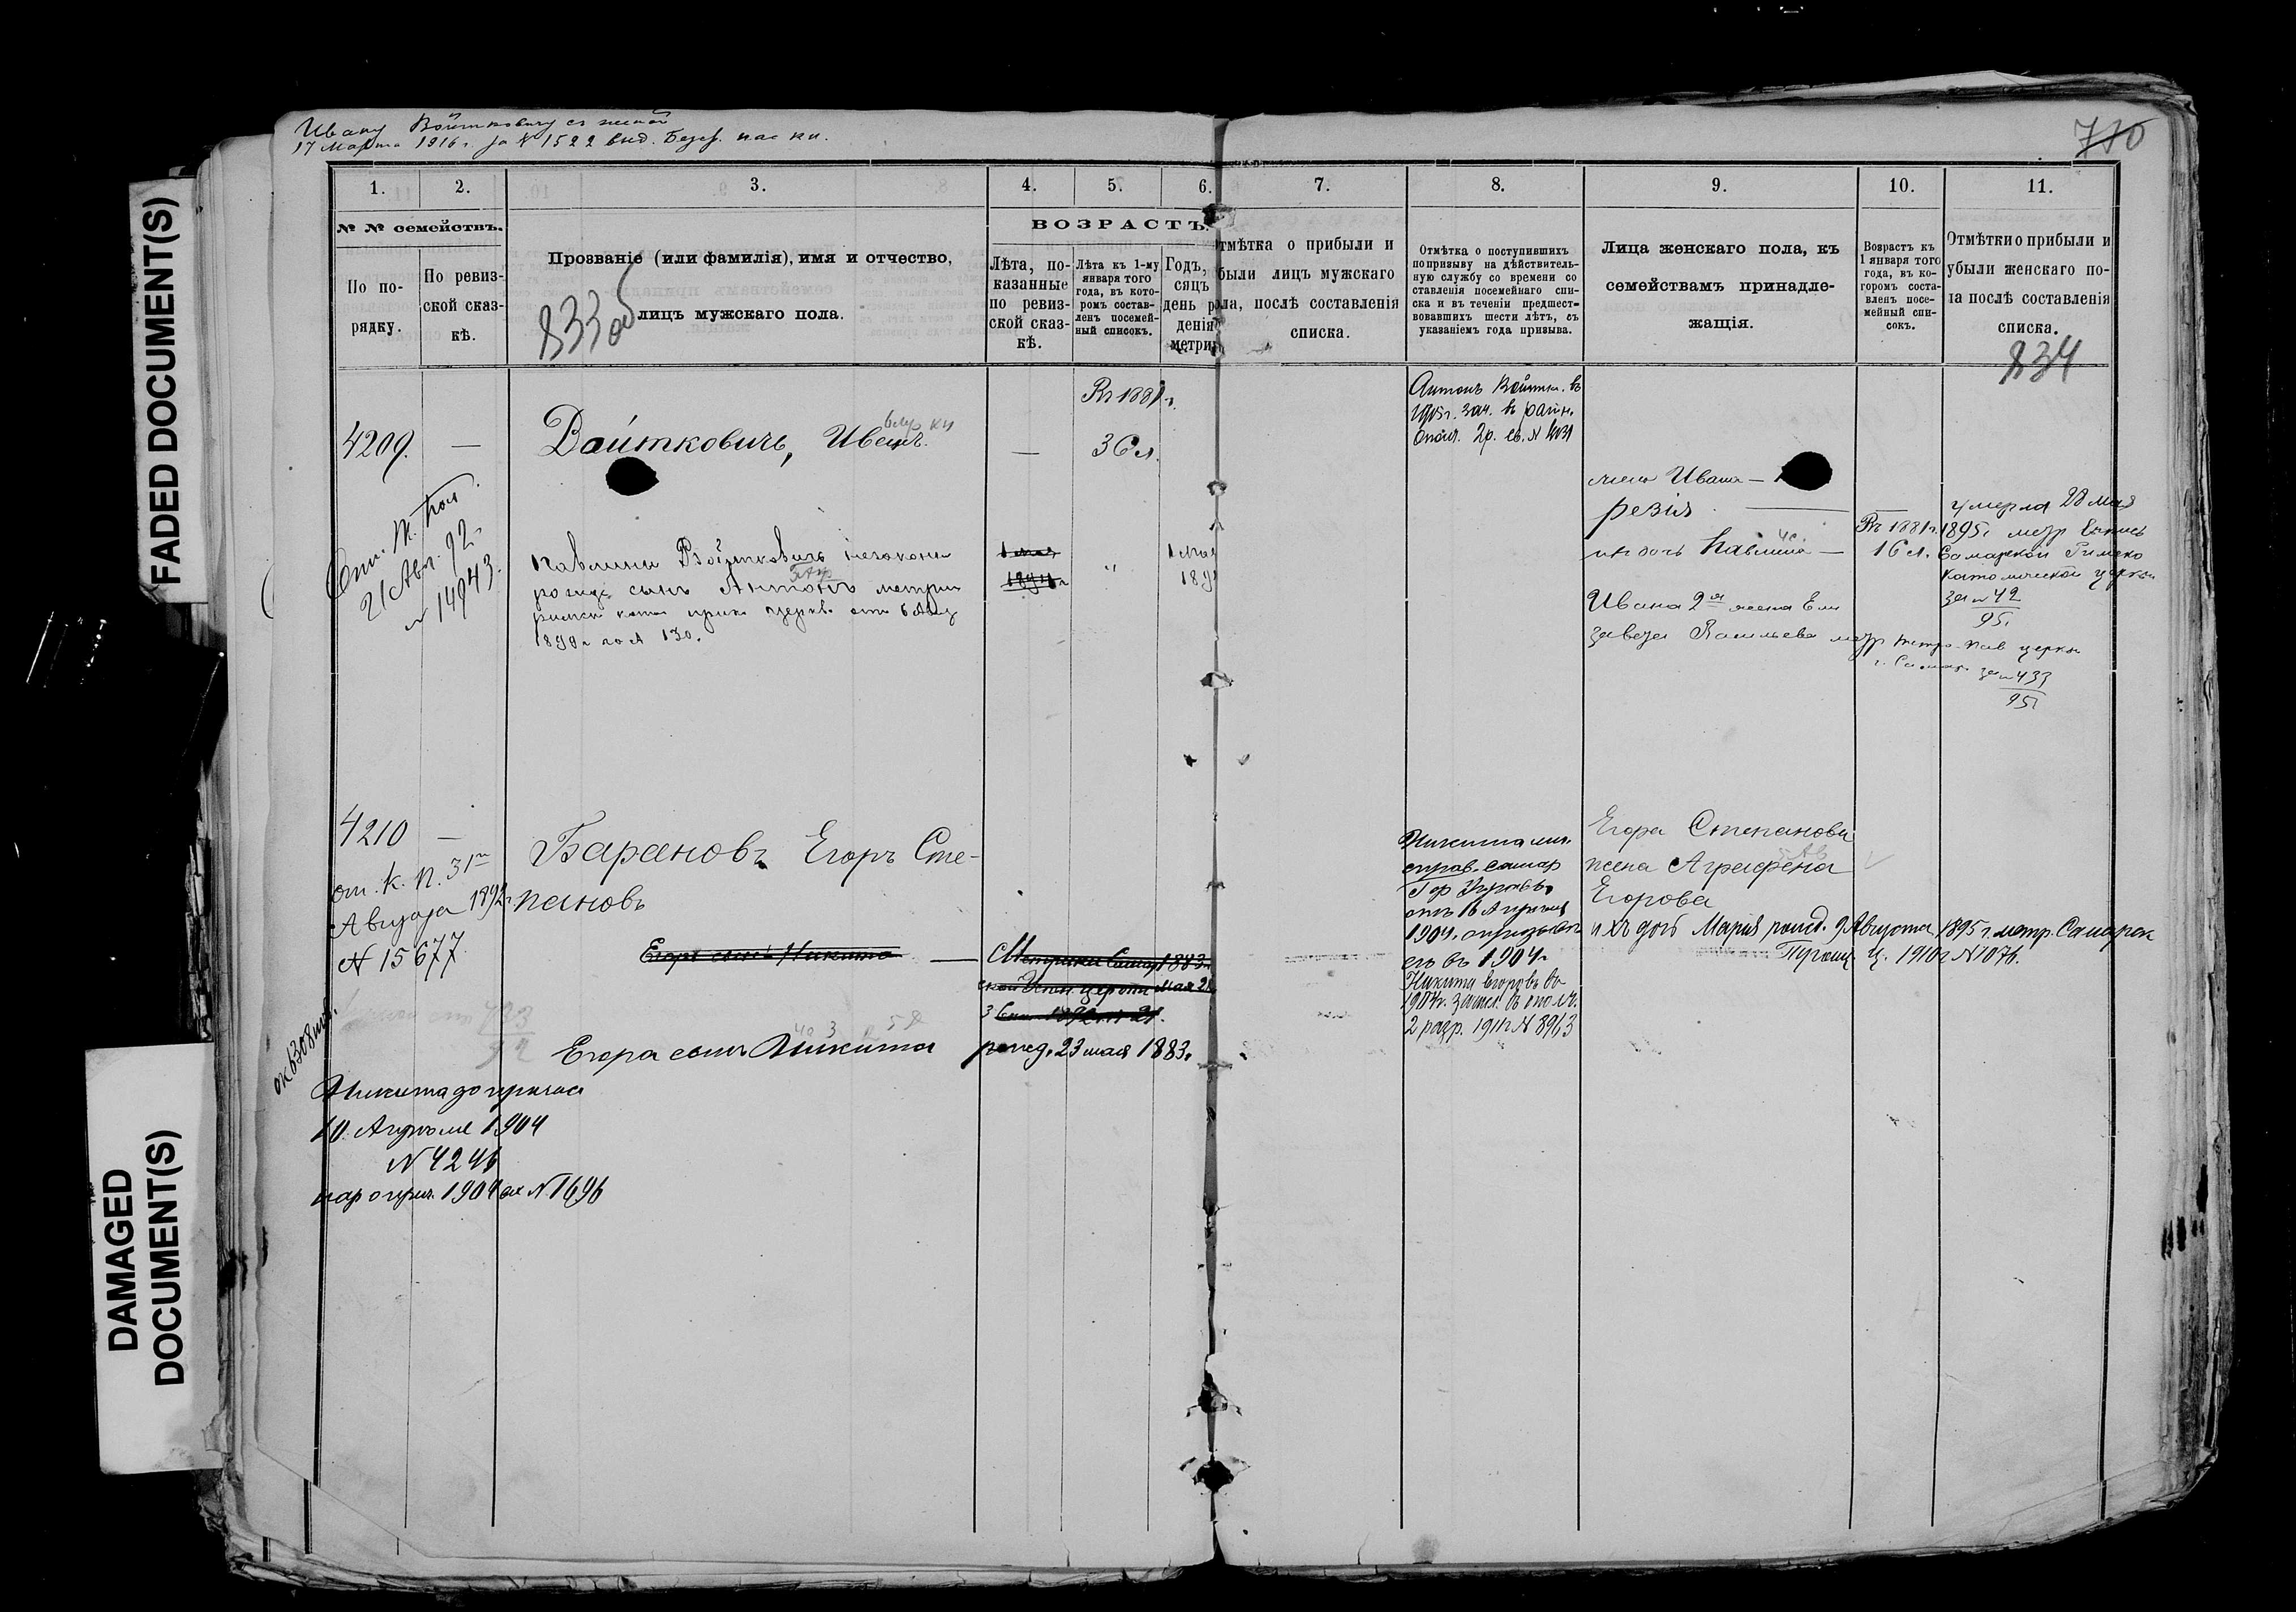 FADED DOCUMENT(S)
DAMAGED
DOCUMENT(S)
Ивану Войтковичу съ женой
17 Марта 1916 г. за № 1522 выд. Безср. пас кн.
710
1.
2.
3.
4.
5.
6.
7.
8.
9.
10.
11.
№ № семействъ.
По по-
рядку.
По ревиз-
ской сказ-
кѣ.
Прозваніе (или фамилія), имя и отчество,
лицъ мужскаго пола.
833об
ВОЗРАСТЪ.
Лѣта, по-
казанные
по ревиз-
ской сказ-
кѣ.
Лѣта къ 1-му
января того
года, въ кото-
ромъ состав-
ленъ посемей-
ный списокъ.
Годъ,
сяцъ
день р
денія
метри
тмѣтка о прибыли и
были лицъ мужскаго
ола, послѣ составленія
списка.
Отмѣтка о поступившихъ
по призыву на дѣйствитель-
ную службу со времени со
ставленія посемейнаго спи-
ска и въ теченіи предшест-
вовавшихъ шести лѣтъ, съ
указаніемъ года призыва.
Лица женскаго пола, къ
семействамъ принадле-
жащія.
Возрастъ къ
1 января того
года, въ ко-
горомъ соста-
вленъ посе-
мейный спи-
сокъ.
Отмѣтки о прибыли и
убыли женскаго по-
ла послѣ составленія
списка.
834
4209. —
Войтковичъ, Иванъ.
—
Въ 1881 г.
36 л.
21 Авг. 92 г.
№ 14943.
Павлины Войтковичъ незакон
рожд сынъ Антонъ метрик
римск катол прих церкв. отъ 6
1899 г за № 130.
1 мая
189
Антонъ Войтк. въ
1915 г. зач. въ ратн.
ополч. 2 р. св. №
жена Ивана —
резія —
ихъ дочь Павлина —
Въ 1881 г.
16 л.
умерла 28 мая
1895 г метр выпись
Самарской Римско
католической церкви
за № 42
95 г
Ивана 2я жена Ели
завета Васильева метр Петро-Пав церкви
г. Самар. за № 433
95 г
4210 —
от. К. П. 31го
Августа 1892 г
№ 15677.
Барановъ Егоръ Сте-
пановъ
Егоръ сынъ Никита —
Метрика Самар 1883.
ской Успен церкви мая 2
Егора сынъ Никита
рожд. 23 мая 1883.
Никита
справ. Самар
Гор Управы
отъ 16 Апрѣля
1904.
его въ 1904 г
Никита Егоровъ въ
1904 г. зачисл. въ ополч.
2 разр. 1911 г № 8963
Егора Степанова
жена Аграфена
Егорова
ихъ дочь Марія рожд. 9 Августа 1895 г. метр. Самарск
Троиц. ц. 1910 г № 1076.
Никита до призыва
10. Апрѣля 1904
№ 4246
1904 за № 1696